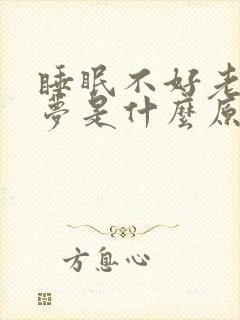 睡眠不好老
夢是什麼原
方息心